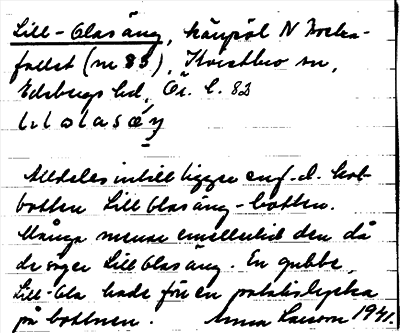 Lill-Olasäng, kärrpöl N Bocka-
fallet (nr 83), Kvistbro sn,
Edsbergs hd, Ör. l. 83
lılolasäŋ
Alldeles intill ligger enl. d. kol-
botten Lill Olasäng-botten.
Många menar emellertid den då
de säger Lill Olasäng. En gubbe,
Lill-Ola hade för en potatislycka
på bottnen. Anna Larsson 1941.